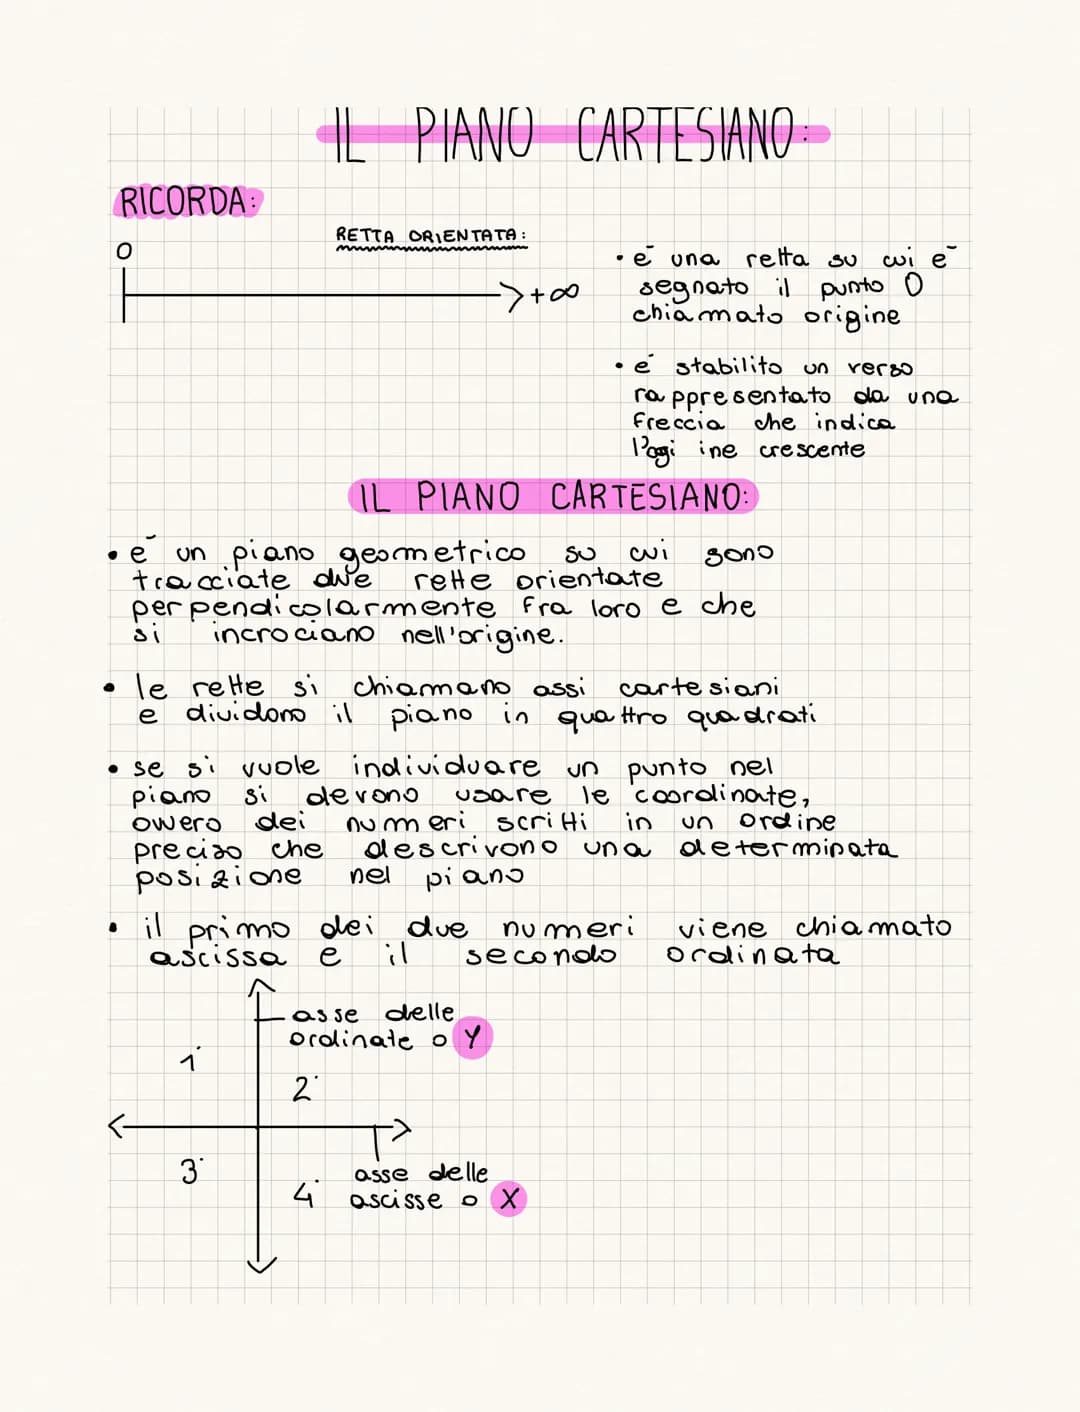 IL PIANO CARTESIANO:
RICORDA:
RETTA ORIENTATA:
O
+∞
• è una retta su cui è
segnato il punto O
chiamato origine
• è stabilito un verso
rappresentato da una
freccia che indica
l'ogi ine crescente
IL PIANO CARTESIANO:
• è un piano geometrico su cui sono
tracciate due rette orientate
perpendicolarmente fra loro e che
si incrociano nell'origine.
• le rette si chiamano assi cartesiani
e dividono il piano in quattro quadrati
• se si vuole individuare un punto nel
piano si devono usare le coordinate,
ovvero dei numeri scritti in un ordine
preciso che descrivono una determinata
posizione nel piano
• il primo dei due numeri viene chiamato
ascissa e il secondo ordinata
asse delle
ordinate o Y
1°
2°
3°
4°
asse delle
ascisse o X